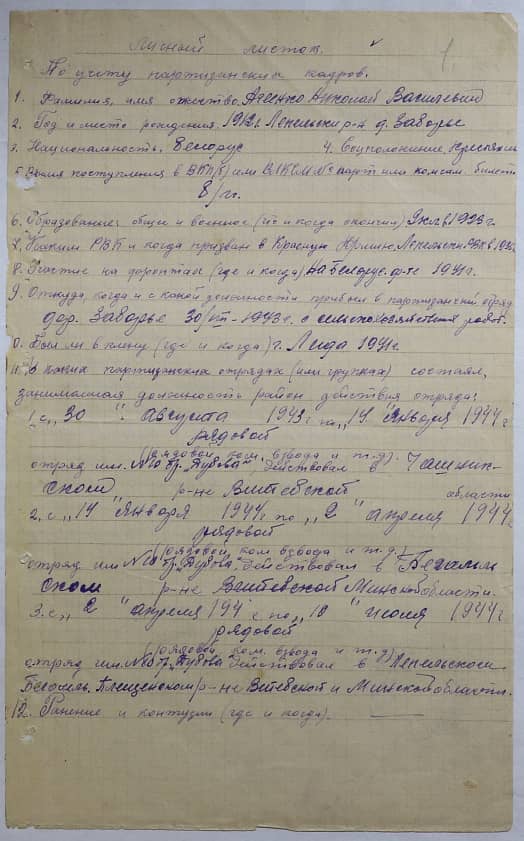 Личный листок.
1.
По учету партизанских кадров.
1. Фамилия, имя отчество. Аденко Николай Васильевич
2. Год и место рождения. 1912г. Лепельский р-н д. Заборье
3. Национальность. белорус 4. Соцположение. крестьянин
5. Время поступления в ВКП(б) или ВЛКСМ № парт или комсам. билета
б/п.
6. Образование: общее и военное (что и когда окончил) 1923г.
7. Каким РВК и когда призван в Красную Армию. Лепельск. РВК в
8. Участие на фронтах (где и когда) на Белорус. ф-те 1941г.
9. Откуда, когда и с какой должности прибыл в партизанский отряд
дер. Заборье 30/VIII-1943г. с сельскохозяйствен работ.
10. Был ли в плену (где и когда) г. Лида 1941г.
11. В каких партизанских отрядах (или группах) состоял,
занимаемая должность район действия отряда:
1. с „30" августа 1943г. по „14" января 1944г
рядовой
(рядовой, ком. взвода и т.д.)
отряд им. №10 бр. „Дубова" действовал в Чашник-
ском р-не Витебской области
2. с „14" января 1944г по „2" апреля 1944г
рядовой
(рядовой, ком взвода и т.д.)
отряд им №10 бр. „Дубова" действовал в Бегомль
ском р-не Витебской Минской области.
3. с „2" апреля 194 г по „10" июня 1944г
рядовой
(рядовой, ком. взвода и т д)
отряд им. №10 бр. „Дубова" действовал в Лепельском
Бегомль. Плещенском р-не Витебской и Минской области.
12. Ранение и контузии (где и когда). —